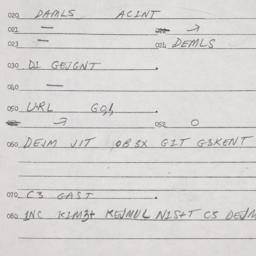 020 DAMLS ACINT
021 —
023 — 024 DEMLS
030 D1 GEJGNT
040 —
050 URL
052 O
060 DEJM JIT OB3X GIT G3KENT
070 C3 GAST
080 INC KIM3t KEJMUL NIST C3 DEJM